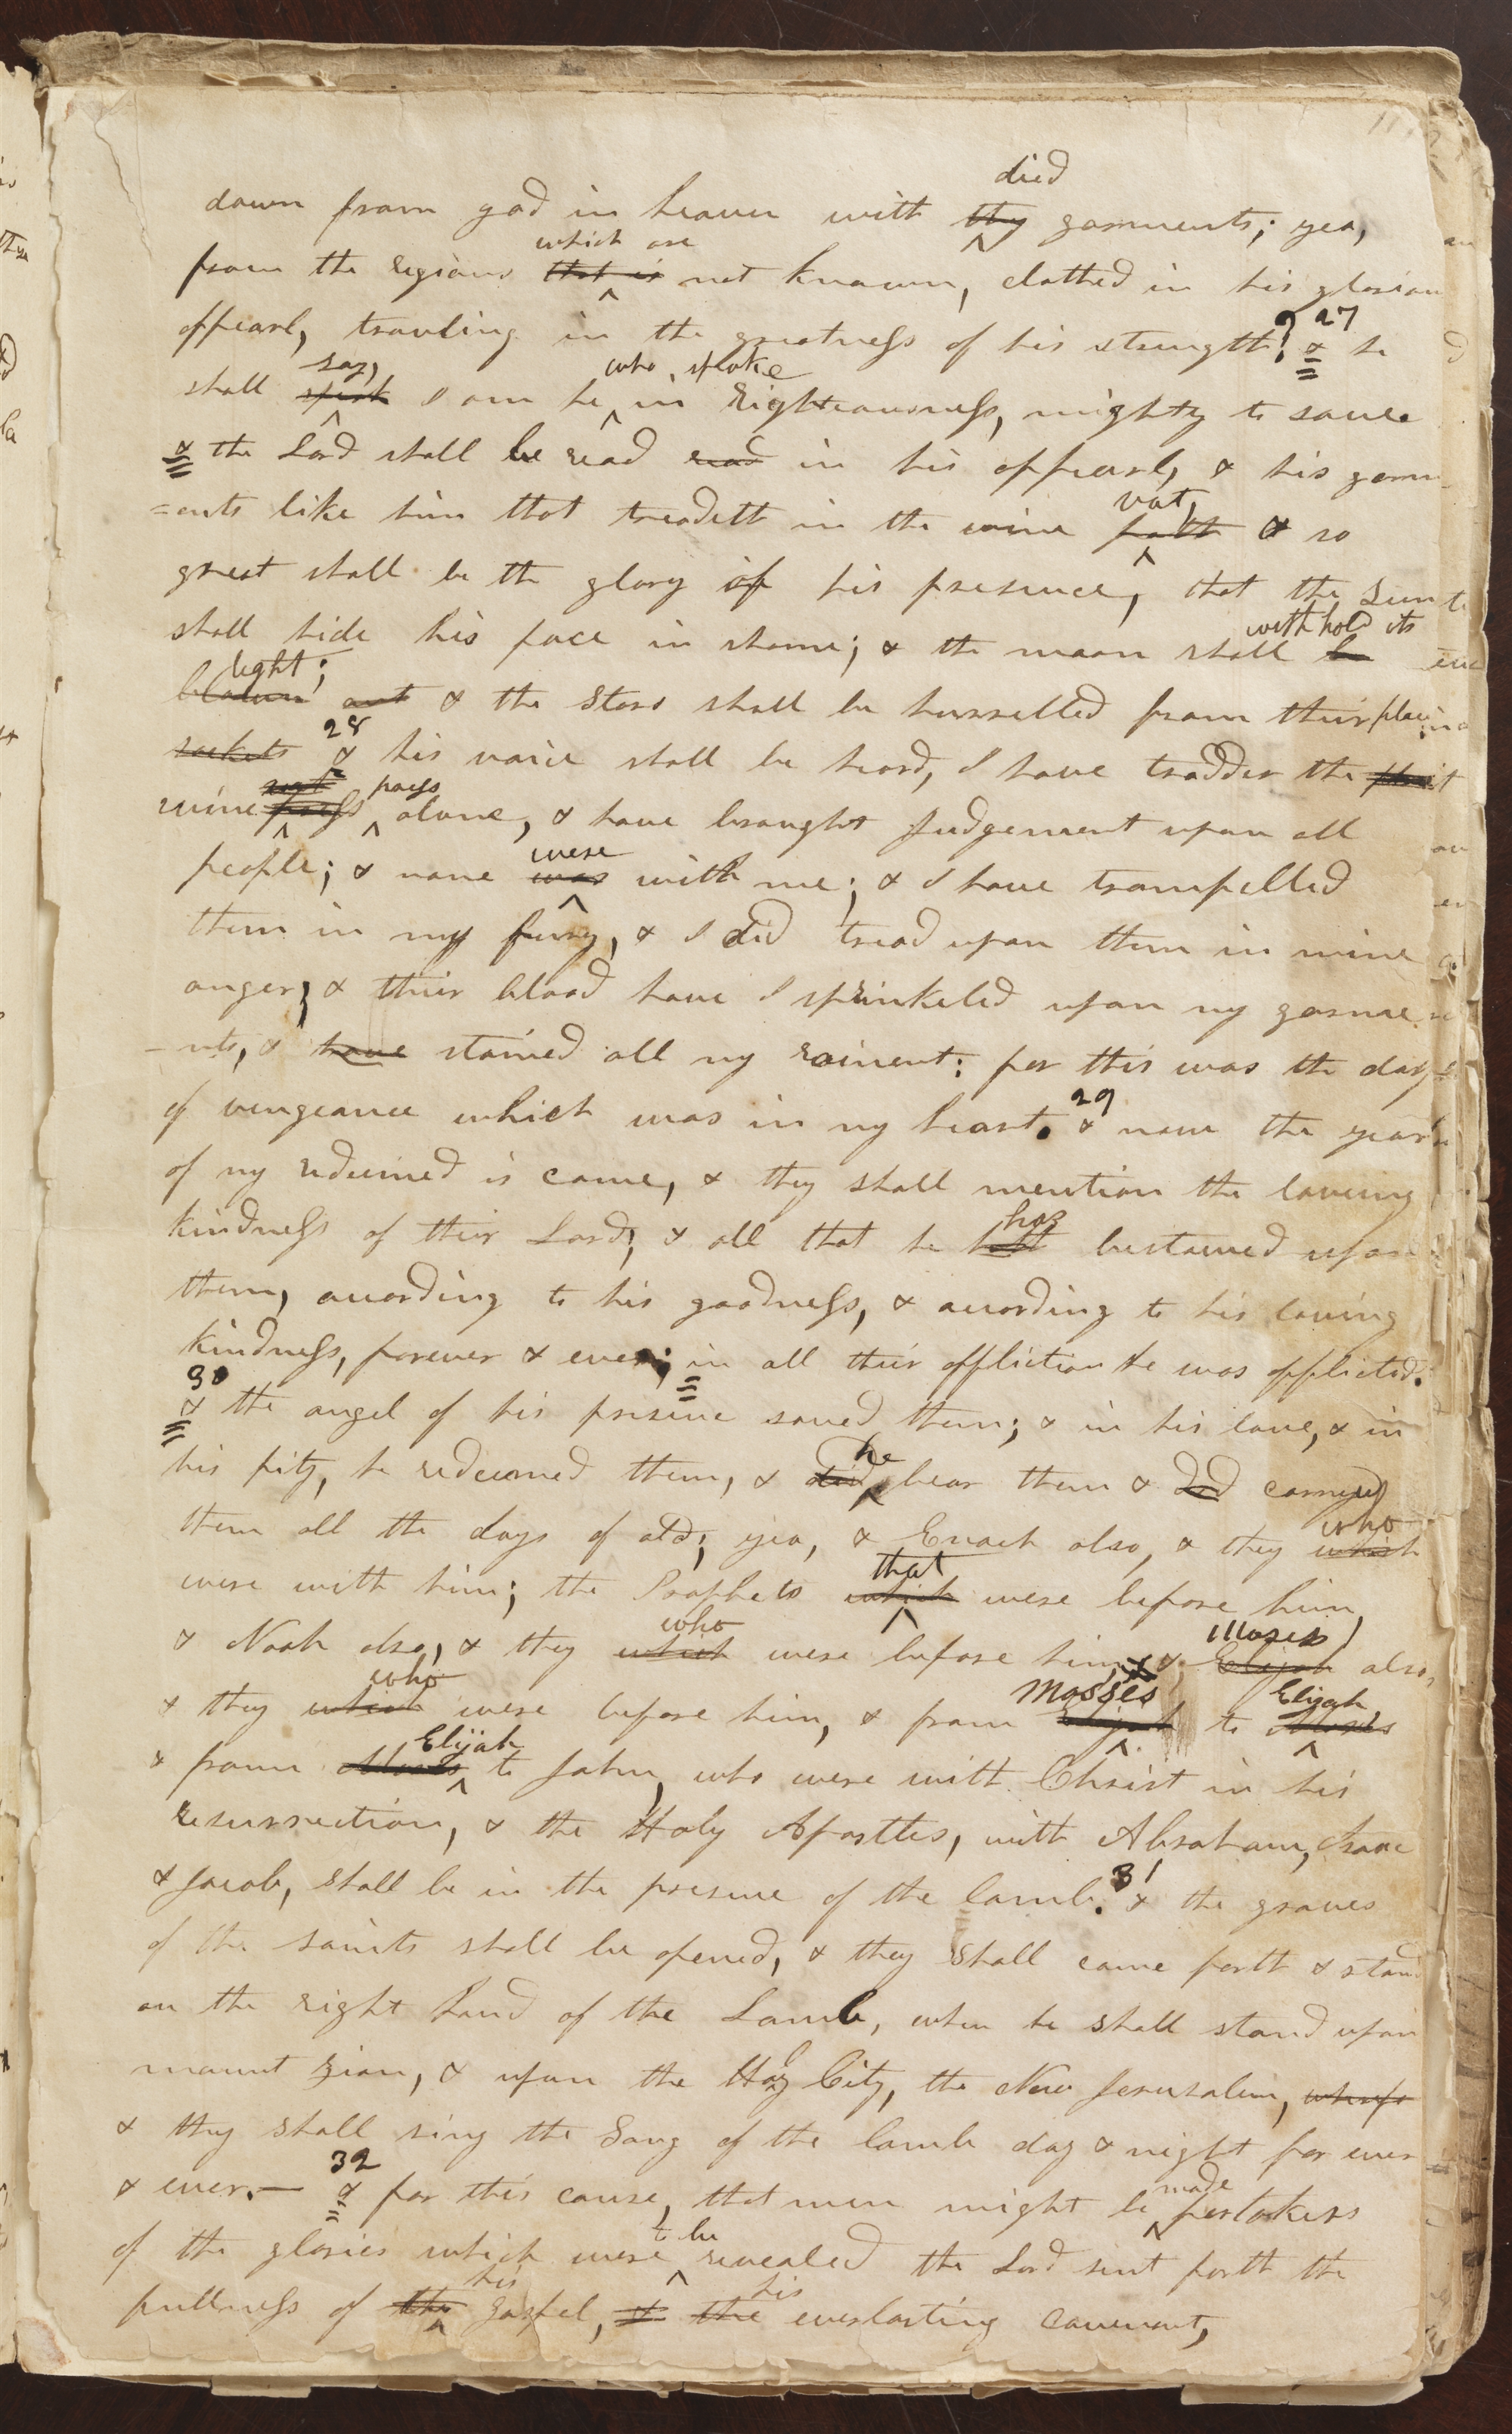 down from god in heaven with thy died garments; yea,
from the regions that is which are not known, clothed in his glorious
appearl, traviling in the greatness of his strength? 27 & he
shall speak say, I am he who spoke in Righteousness, mighty to save.
& the Lord shall be read read in his appearl, & his garm
=ents like him that treadeth in the wine fatt vat, & so
great shall be the glory of his presence, that the Sun
shall hide his face in shame; & the moon shall be withhold its
blown light; out & the Stars shall be hurrelled from their place.
sockets 28 & his voice shall be heard, I have trodden the
wine press alone, & have braught Judgement upon all
people; & none was were with me; & I have trampelled
them in my fury, & I did tread upon them in mine
anger, & their blood have I sprinkeled upon my garme
-nts, & have stained all my raiment: for this was the day
of vengeance which was in my heart. 29 & now the year
of my redeemed is come, & they shall mention the loveing
kindness of their Lord, & all that he hath has bestowed upon
them, according to his goodness, & according to his loving
kindness, forever & ever; in all their affliction he was afflicted.
30 & the angel of his presence saved them; & in his love, & in
his pity, he redeemed them, & did he bear them & did carried
them all the days of old; yea, & Enoch also, & they which who
were with him; the Prophets which that were before him,
& Noah also, & they which who were before him, & Elijah Moses also,
& they which who were before him, & from Elijah Mosses to Moses Elijah
& from Moses Elijah to John, who were with Christ in his
resurrection, & the Holy Apostles, with Abraham, Isaac
& Jacob, shall be in the presence of the lamb. 31 & the graves
of the saints shall be opened, & they shall come forth & stand
on the right hand of the Lamb, when he shall stand upon
mount zion, & upon the Holy City, the New Jerusalem,
& they shall sing the Song of the lamb day & night for ever
& ever.— 32 & for this cause, that men might be made partakers
of the glories which were to be revealed the Lord sent forth the
fullness of the his gospel, & the his everlasting covenant,